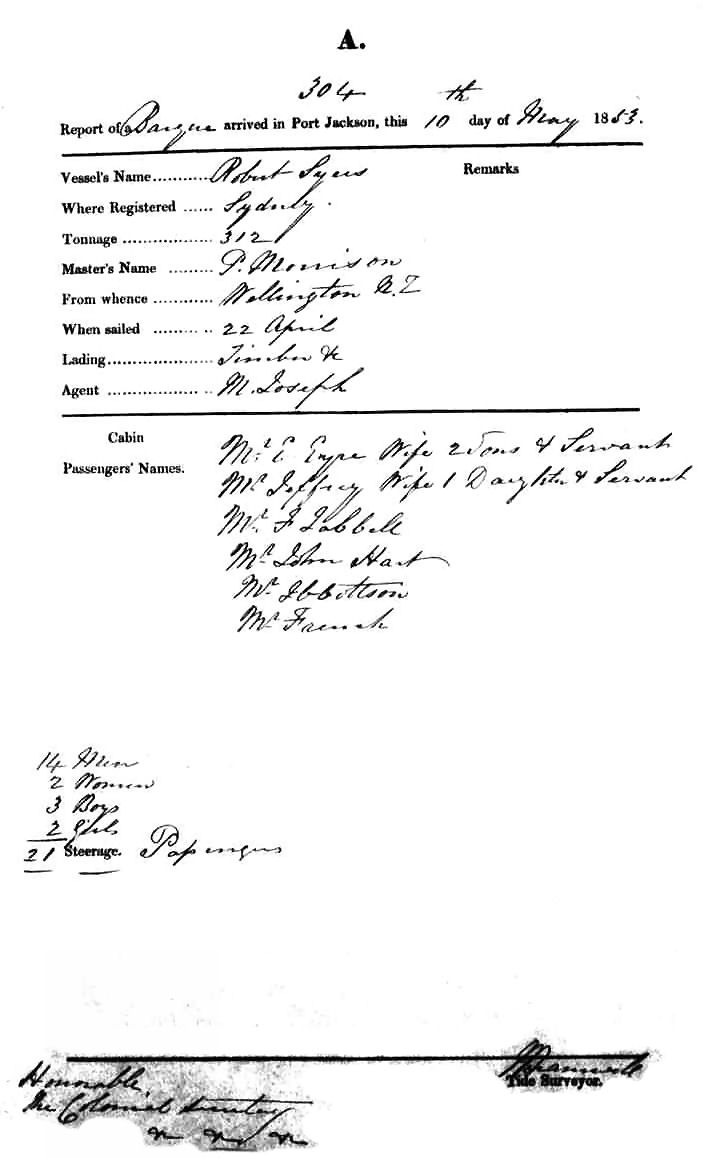 A.
304 th
Report of Barque arrived in Port Jackson, this 10 day of May 1853.
Vessel's Name........... Robert Syers Remarks
Where Registered ...... Sydney.
Tonnage .................. 312
Master's Name ......... P. Morrison
From whence ............ Wellington N.Z
When sailed ......... .. 22 April
Lading..................... Timber &c
Agent .................. .. M. Joseph
Cabin
Passengers' Names.
Mr. E Eyre Wife 2 Sons & Servant
Mr Jeffrey Wife 1 Daughter & Servant
Mr. F
Mr. John Hart
Mr. Ibbottson
Mr. French
14 Men
2 Women
3 Boys
2 Girls
21 Steerage. Passengers
Tide Surveyor.
Honorable
The Colonial Secretary
&c &c &c